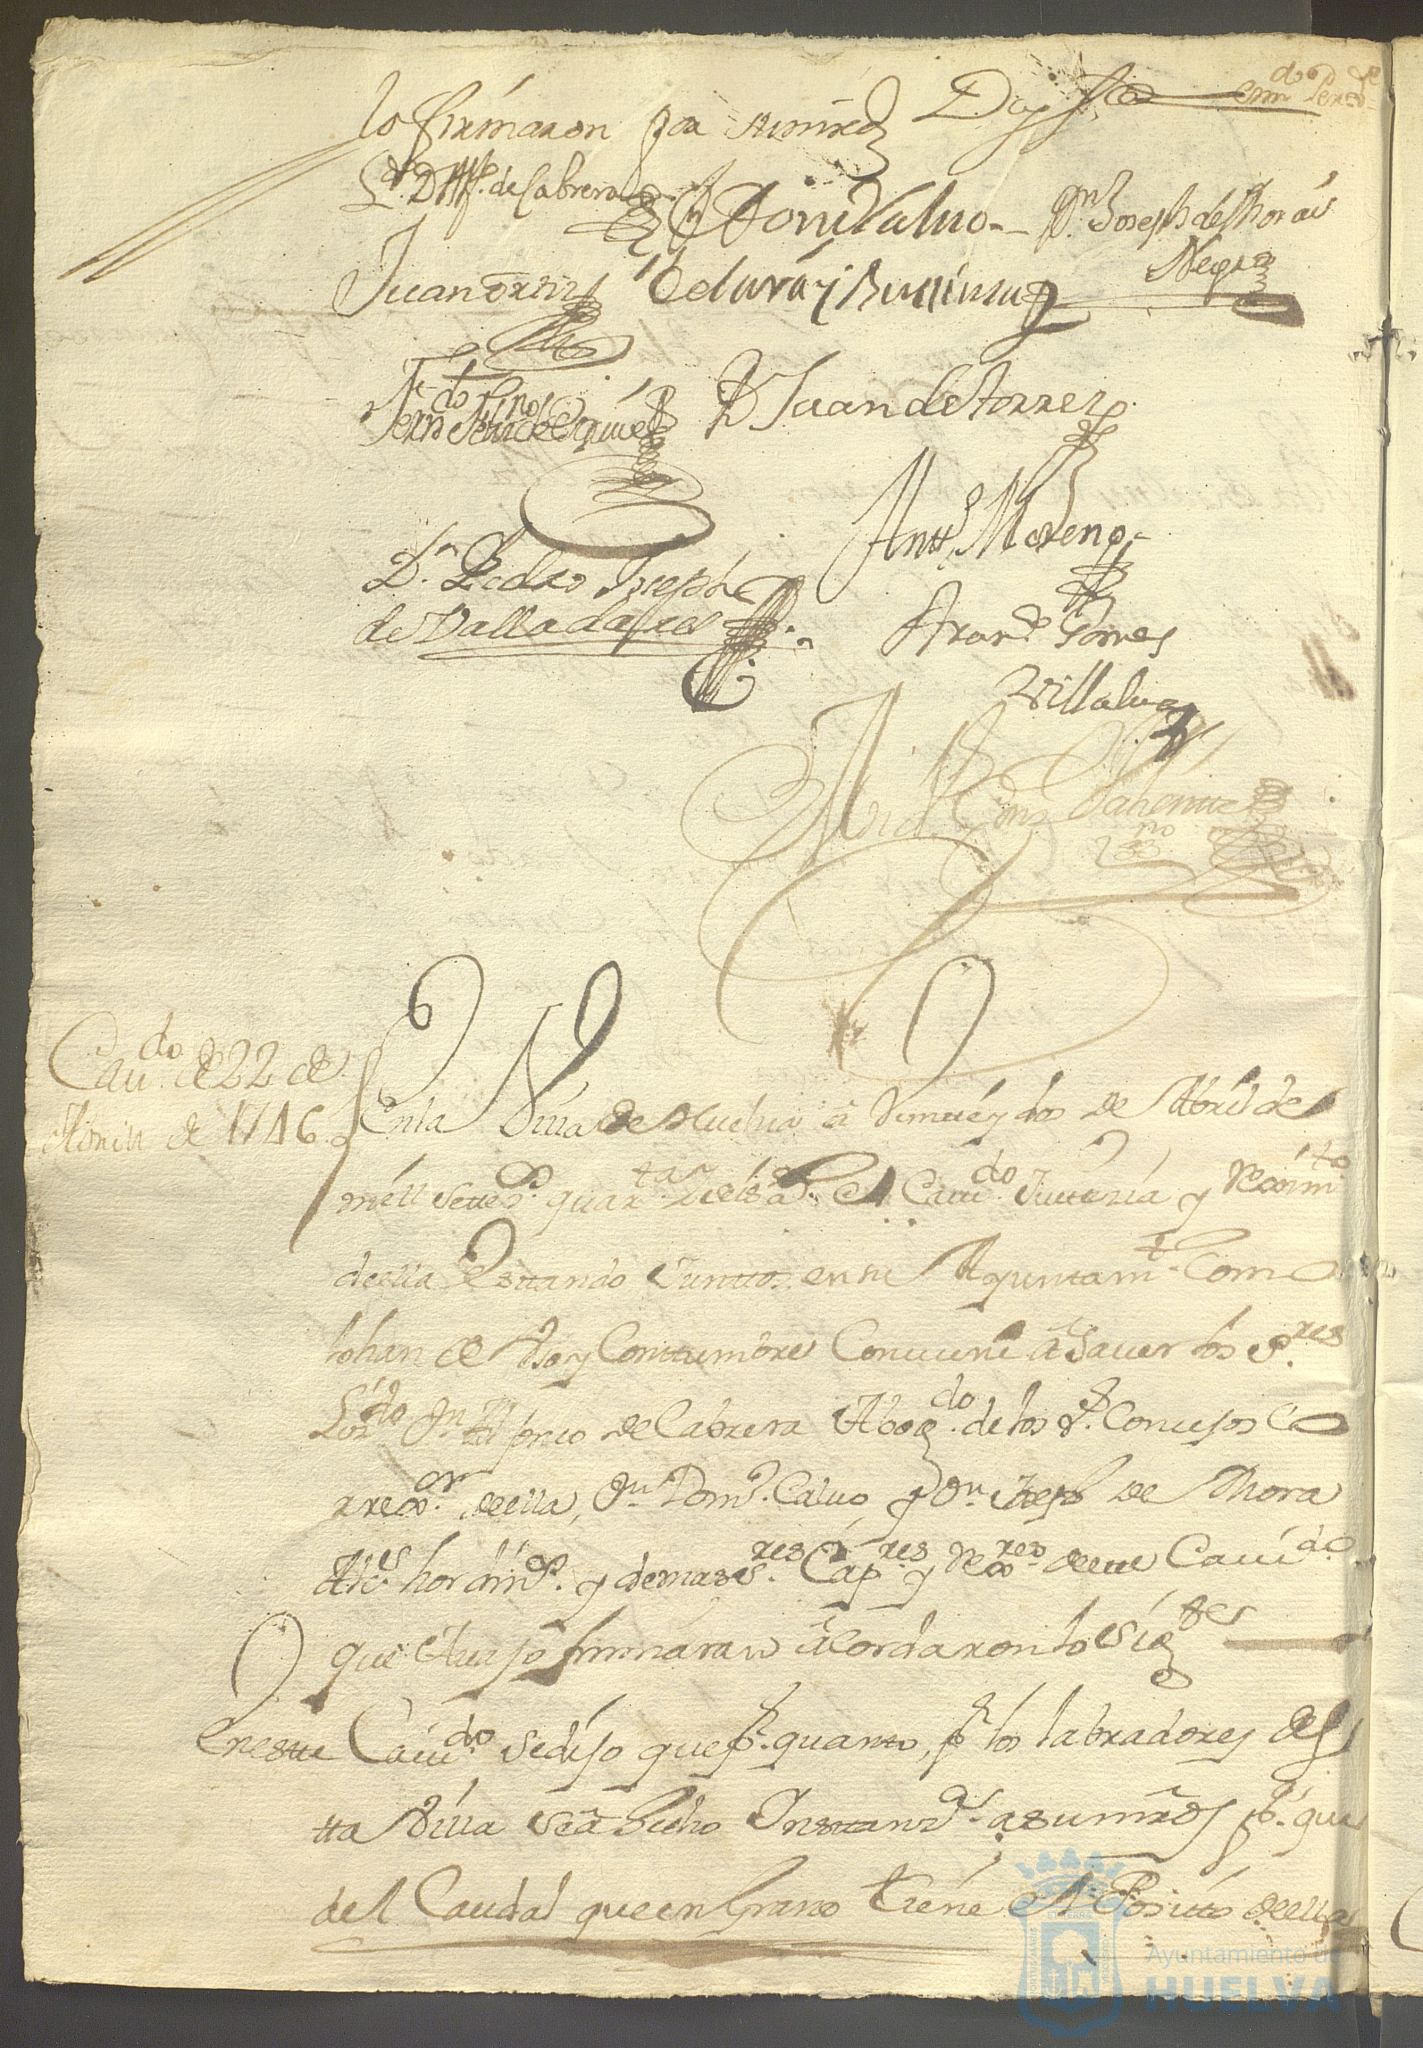 lo firmaron por su mrd Doy fee
L.do D. Alf.o de Cabrera
Domº Calvo D.n Joseph de Mora
Negro
Juan Ortiz
D Juan de torres
D.n Pedro Joseph
de Valladares
Antt.o Moreno
Gomes
Villalua
Cav.do de 22 de
Abril de 1746
En la Villa de Huelva a Veinte y dos de Abril de
mill settes.s quar.ta y seis a.s el Cav.do Justizia y Reximi.to
de ella Estando Junttos en su Ayuntam.to Como
lo han de Uso y Costtumbre Conviene a Saver los S.res
Liz.do D.n Alfonso de Cabrera Abog.do de los R.s Consejos Co
rrex.or de ella, D.n Dom.o Calvo y D.n Joseph de Mora
Alc.es hordin.s y demas S.res Cap.res y Rex.res de este Cav.do
que Avajo firmaran acordaron lo Sig.te
En este Cav.do se dijo que p.r quanto, p.r los labradores de es
tta Villa se a hecho Insttanz.a a sus mrds p.a que
del Caudal que en Grano tiene el Positto de ella
Ayuntamiento de
HUELVA